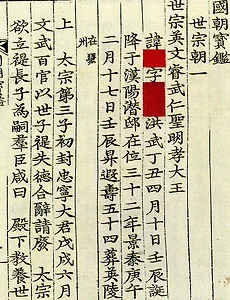 國朝寶鑑
世宗朝一
世宗英文睿武仁聖明孝大王
諱 字 洪武丁丑四月十日壬辰誕
降于漢陽潛邸在位三十二年景泰庚午
二月十七日壬辰昇遐壽五十四葬英陵
在驪州
上 太宗第三子初封忠寧大君戊戌六月
文武百官以世子禔失德合辭請廢 太宗
欲立禔長子爲嗣羣臣咸曰 殿下教養世